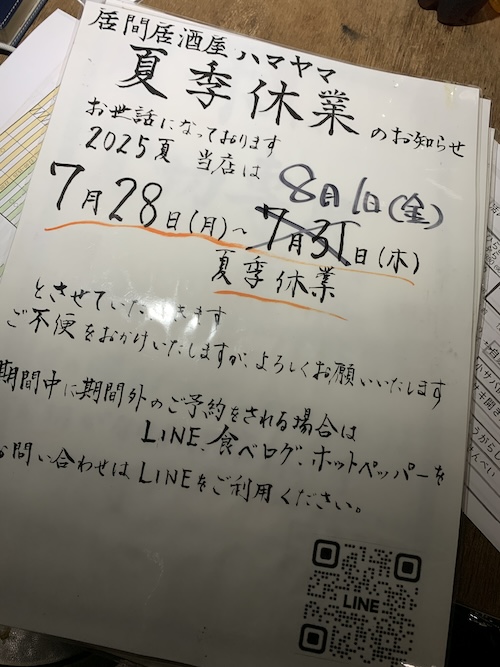 居間居酒屋ハマヤマ
夏季休業のお知らせ
お世話になっております
2025夏 当店は
8月1日(金)
7月28日(月)~7月31日(木)
夏季休業
とさせていただきます
ご不便をおかけいたしますが、よろしくお願いいたします
期間中に期間外のご予約をされる場合は
LINE、食べログ、ホットペッパーを
お問い合わせはLINEをご利用ください。
LINE